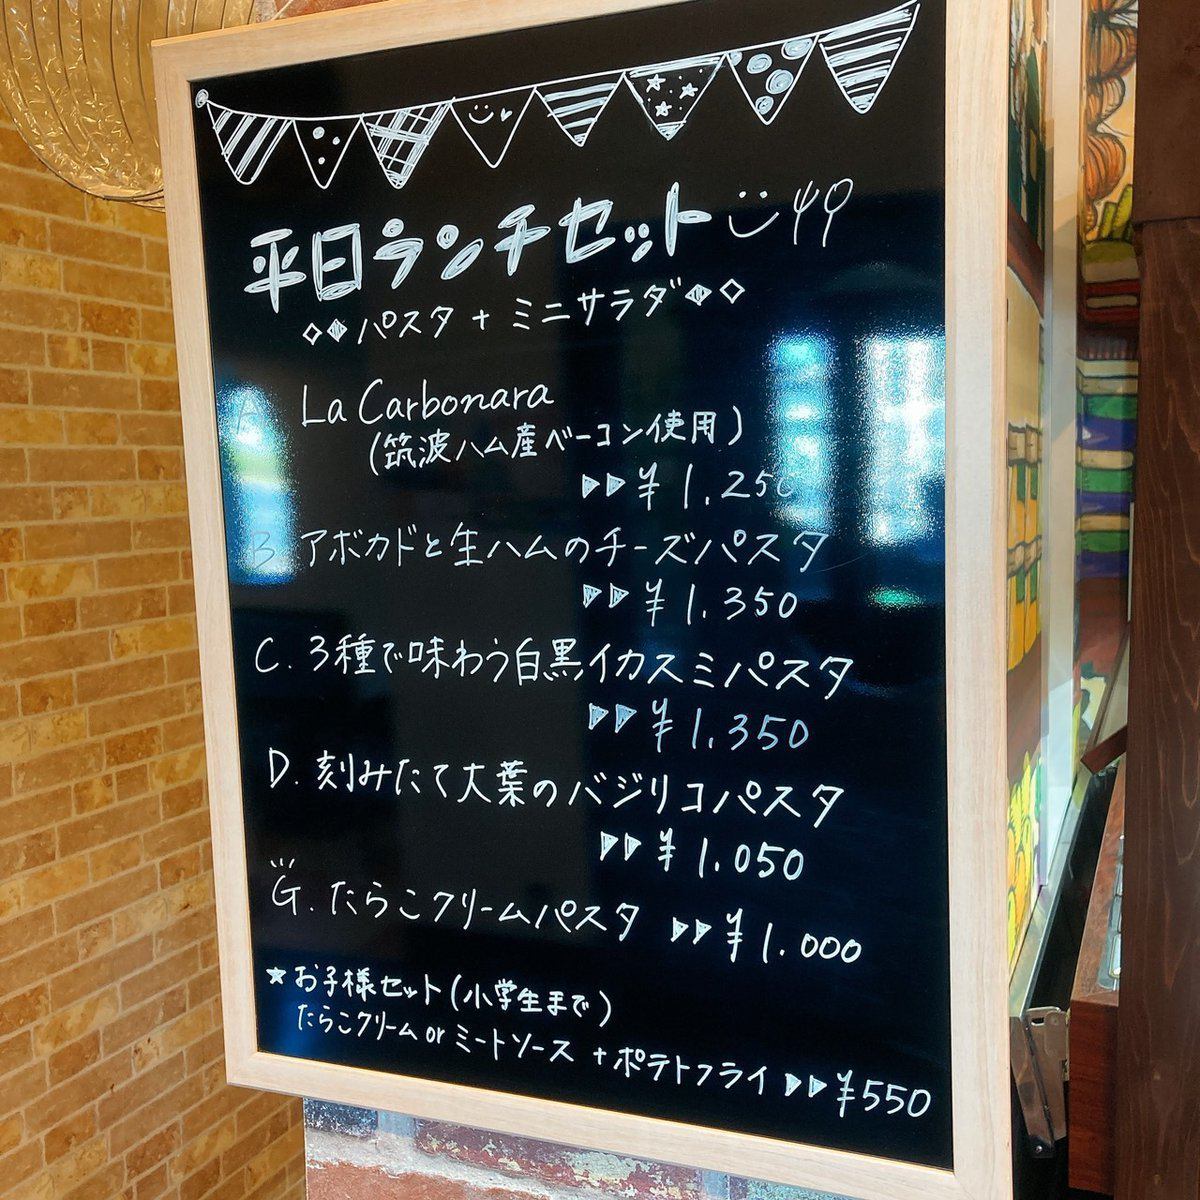 平日ランチセット
パスタ + ミニサラダ
A. La Carbonara
(筑波ハム産ベーコン使用)
¥1.250
B. アボカドと生ハムのチーズパスタ
¥1.350
C. 3種で味わう白黒イカスミパスタ
¥1.350
D. 刻みたて大葉のバジリコパスタ
¥1.050
G. たらこクリームパスタ ¥1.000
★お子様セット(小学生まで)
たらこクリーム or ミートソース + ポテトフライ ¥550